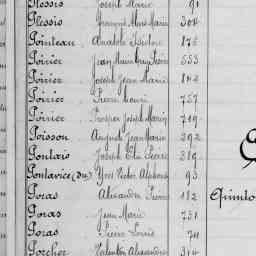 Plessis Joseph Marie 91
Plessis Marie 304
Pointeau Anatole Isidore 176
Poirier Jean Marie 555
Poirier Joseph Jean Marie 142
Poirier Pierre Louis 757
Poirier Prosper Joseph Marie 719
Poisson Auguste Jean Marie 292
Pontais Joseph Elie Pierre 319
Pontavice (du) Yves Victor Alphonse 93
Poras Alexandre Pierre 112
Quinto
Poras Jean Marie 731
Poras Pierre Louis 711
Porcher Valentin Alexandre 314